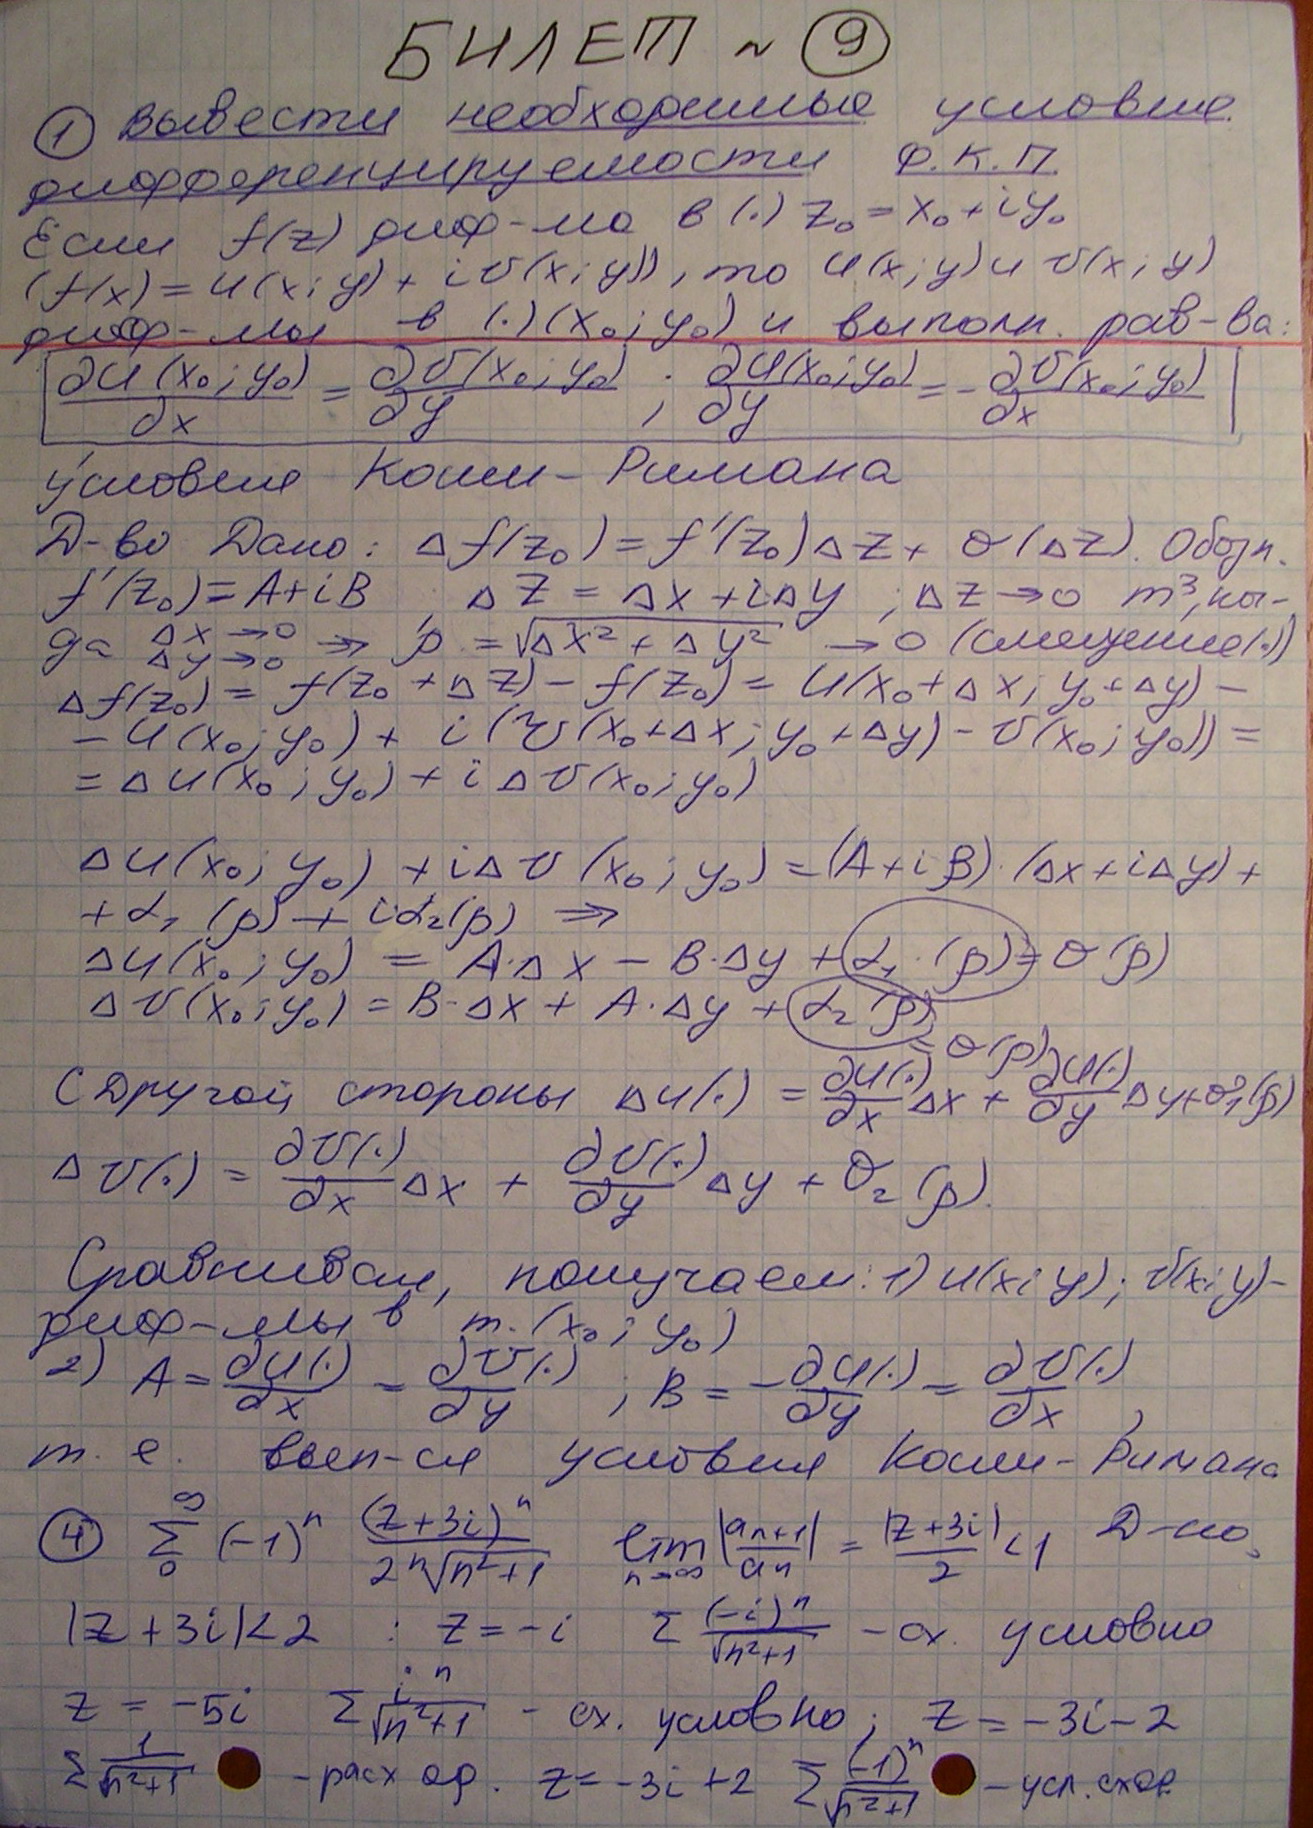 БИЛЕТ ~ 9
① Вывести необходимые условие
дифференцируемости Ф.К.П.
Если f(z) диф-ма в (.) z₀ = x₀ + iy₀
(f(x) = u(x; y) + iv(x; y)), то u(x; y) и v(x; y)
диф-мы в (.) (x₀; y₀) и выполн. рав-ва:
∂u(x₀; y₀)/∂x = ∂v(x₀; y₀)/∂y ; ∂u(x₀; y₀)/∂y = -∂v(x₀; y₀)/∂x
Условие Коши-Римана
Д-во Дано: Δf(z₀) = f'(z₀)Δz + o(Δz). Обозн.
f'(z₀) = A + iB ; Δz = Δx + iΔy ; Δz → 0 т³, ко-
да Δx → 0 Δy → 0 ⇒ ρ = √(Δx² + Δy²) → 0 (смещение(.))
Δf(z₀) = f(z₀ + Δz) - f(z₀) = u(x₀ + Δx; y₀ + Δy) -
- u(x₀; y₀) + i(v(x₀ + Δx; y₀ + Δy) - v(x₀; y₀)) =
= Δu(x₀; y₀) + iΔv(x₀; y₀)
Δu(x₀; y₀) + iΔv(x₀; y₀) = (A + iB)·(Δx + iΔy) +
+ α₁(ρ) + iα₂(ρ) ⇒
Δu(x₀; y₀) = A·Δx - B·Δy + α₁·(ρ) = o(ρ)
Δv(x₀; y₀) = B·Δx + A·Δy + α₂(ρ)
= o(ρ)
С другой стороны Δu(.) = ∂u(.)/∂x Δx + ∂u(.)/∂y Δy + o₁(ρ)
Δv(.) = ∂v(.)/∂x Δx + ∂v(.)/∂y Δy + o₂(ρ).
Сравнивая, получаем: 1) u(x; y); v(x; y) -
диф-мы в т. (x₀; y₀)
2) A = ∂u(.)/∂x = ∂v(.)/∂y ; B = -∂u(.)/∂y = ∂v(.)/∂x ,
т. е. вып-ся условия Коши-Римана
④ ∞ Σ 0 (-1)ⁿ (z+3i)ⁿ/(2ⁿ√(n²+1)) lim n→∞ |aₙ₊₁/aₙ| = |z+3i|/2 < 1 Д-но,
|z + 3i| < 2 : z = -i Σ (-i)ⁿ/√(n²+1) - сх. условно
z = -5i Σ iⁿ/√(n²+1) - сх. условно; z = -3i - 2
Σ 1/√(n²+1) - расход. z = -3i + 2 Σ (-1)ⁿ/√(n²+1) - усл. сход